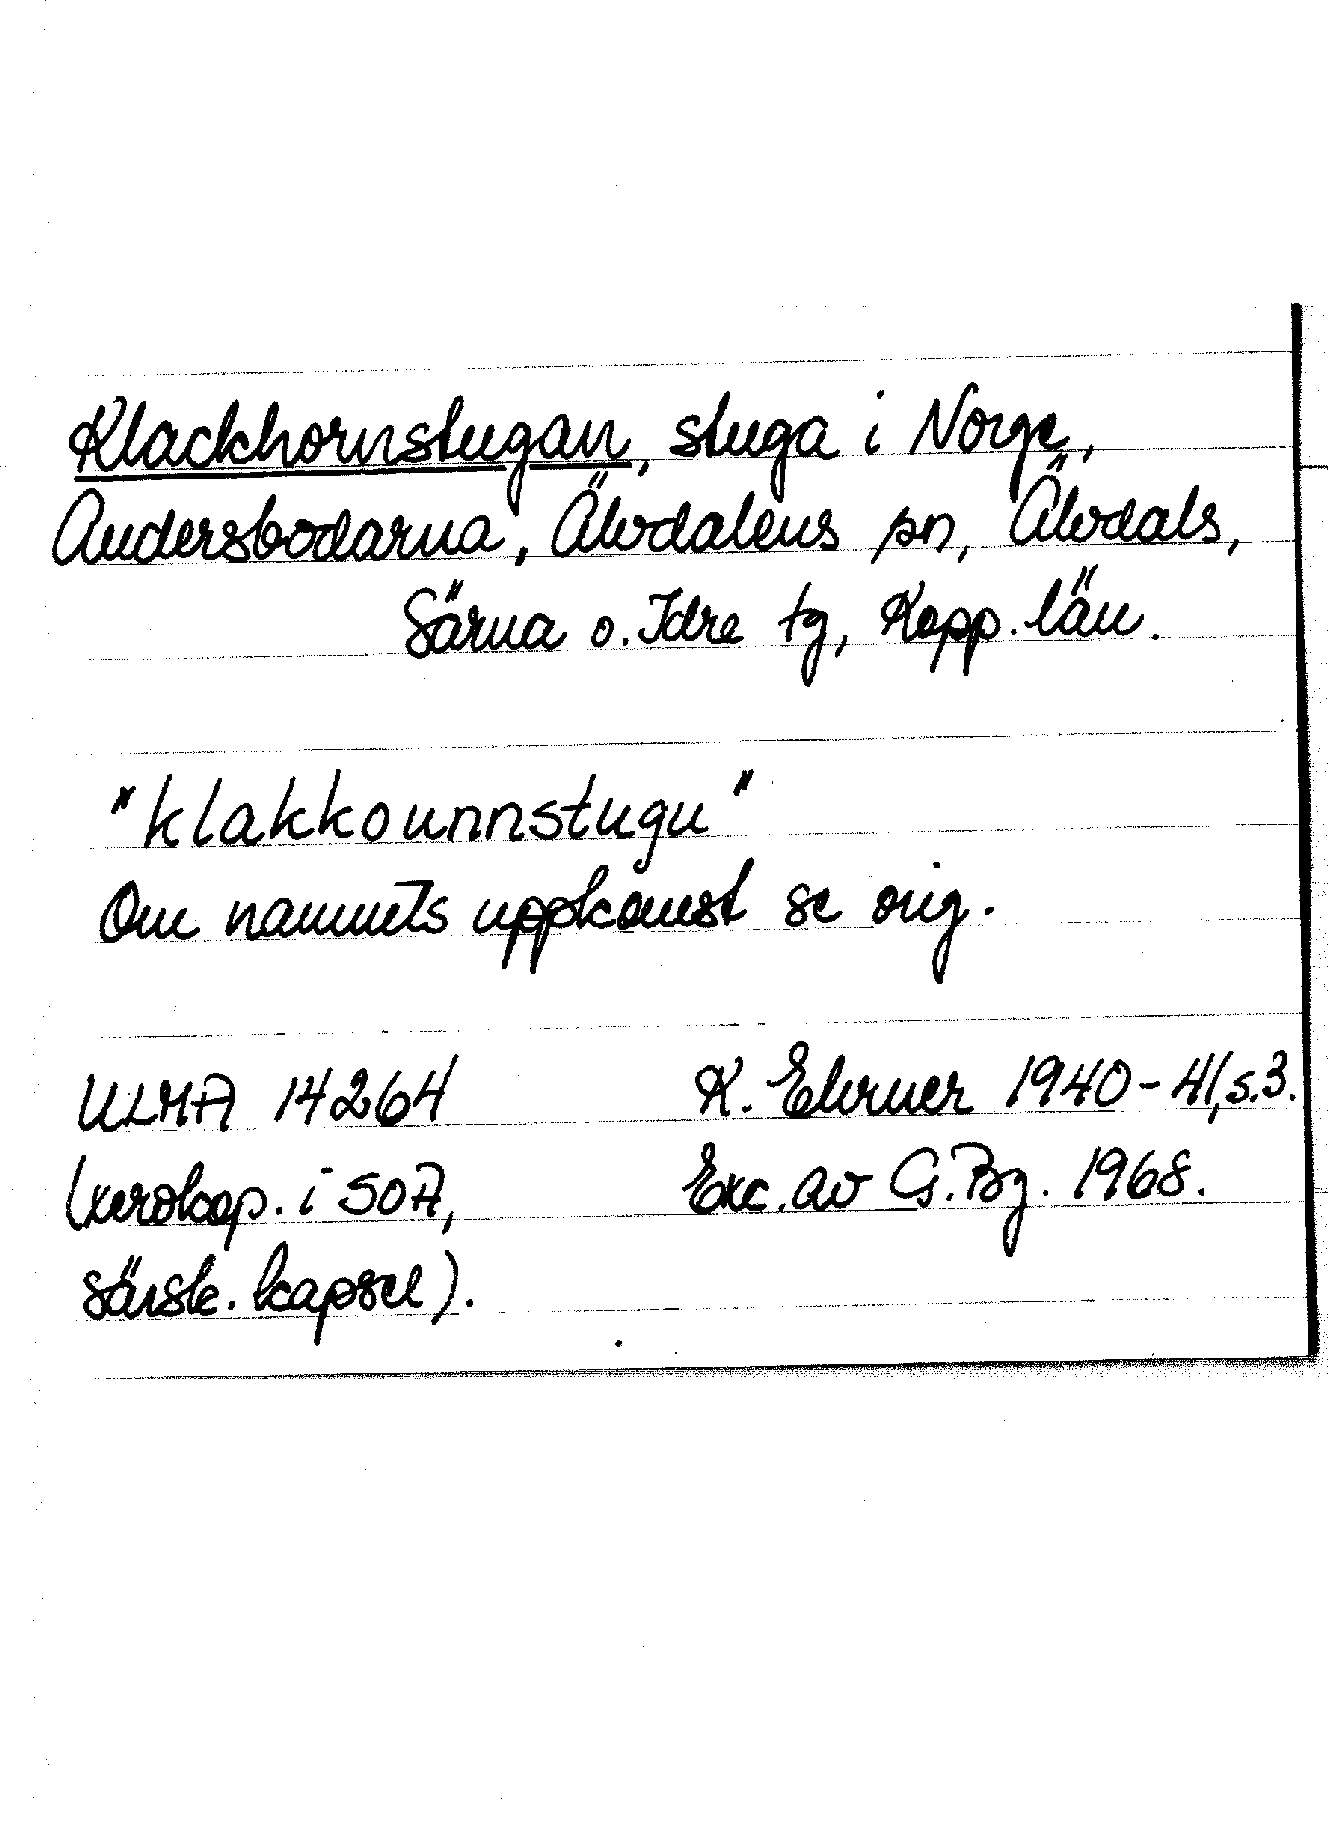 Klackhornstugan, stuga i Norge,
Andersbodarna, Älvdalens sn, Älvdals,
Särna o. Idre tg, Kopp. län.
"klakkounnstugu"
Om namnets uppkomst se orig.
ULMA 14264 K. Ehrner 1940-41, s.3.
(xerokop. i SOA, Exc. av G.Bg. 1968.
särsk. kapsel).